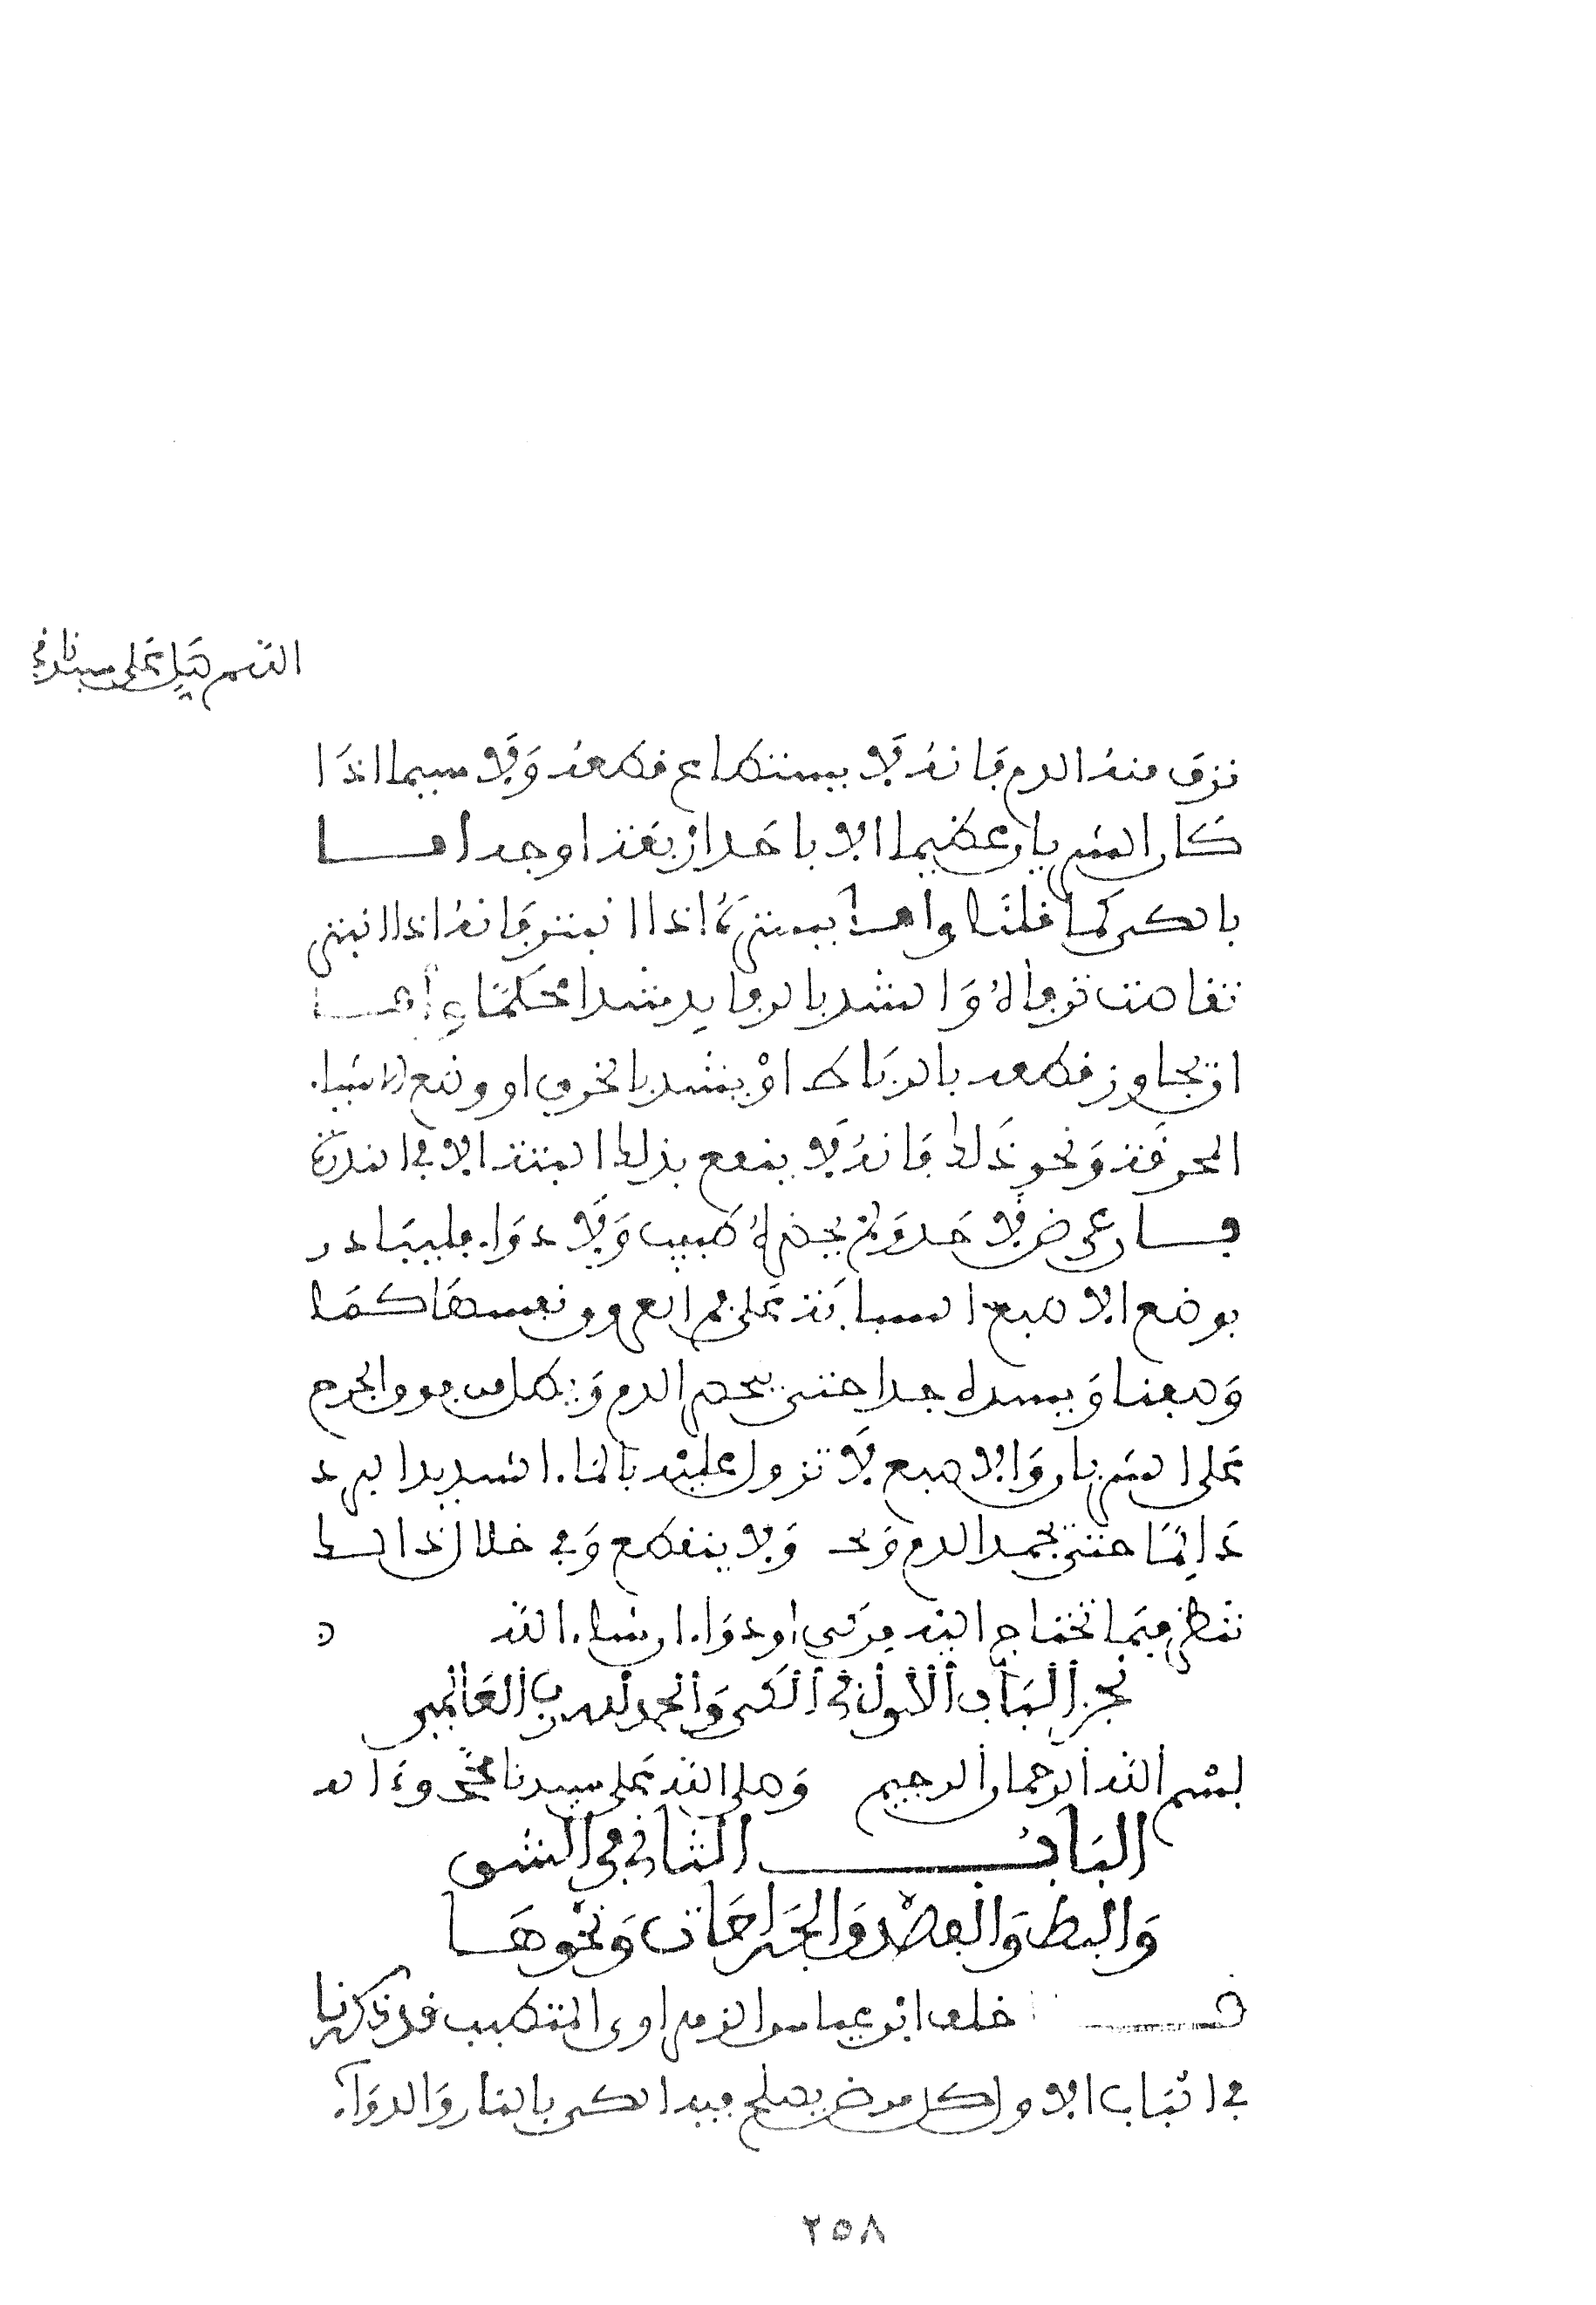 اللهم صل على سيدنا
نزف منه الدم فانه لا يستطاع قطعه ولا سيما اذا
كان الشريان عظيما الا باحد اربعة اوجه اما
بالكي كما قلنا واما ببتره اذا انبتر فانه اذا انبتر
تقلصت طرفاه والشد بالرفايد شدا محكما واما
ان يحاول قطعه بالرباط او يشد بالخرق او وضع الاشياء
المحرقة ونحو ذلك فانه لا ينفع بذلك البتة الا في الندرة
فان عرض لاحد ولم يحضره طبيب ولا دواء فليبادر
بوضع الاصبع السبابة على فم العرق نفسها كما
وصفنا ويسده جدا حتى يحصر الدم وينطل من فوق الجرح
على الشريان والاصبع لا تزول عليه بالماء الشديد البرد
دائما حتى يجمد الدم ولا ينقطع وفي خلال ذلك
تنظر فيما تحتاج اليه من كي او دواء ان شاء الله
نجز الباب الاول في الكي والحمد لله رب العالمين
بسم الله الرحمان الرحيم وصلى الله على سيدنا محمد وءاله
الباب الثاني في الشق
والبط والفصد والجراحات ونحوها
قال خلف ابن عباس الزهراوي المتطبب قد ذكرنا
في الباب الاول كل مرض يصلح فيه الكي بالنار والدواء
٢٥٨